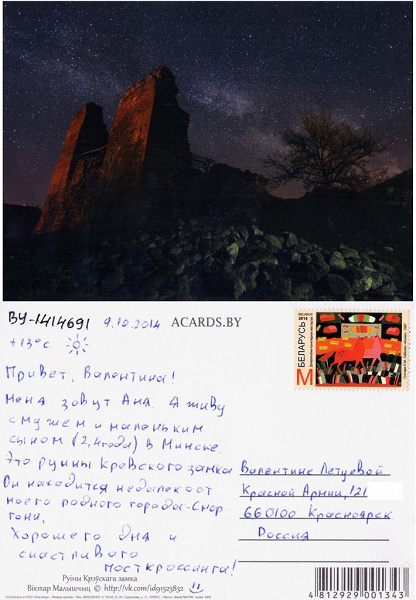 BY-1414691 9.10.2014 ACARDS.BY
+13°C
Привет, Валентина!
Меня зовут Аня. Я живу
с мужем и маленьким
сыном (2,4 года) в Минске.
Это руины Кревского замка
Он находится недалеко от
моего родного города-Смор-
гони.
Хорошего дня и
счастливого
посткроссинга!
BELARUS
2014
БЕЛАРУСЬ
M
Валентине Летуевой
Красной Армии, 121
660100 Красноярск
Россия
Руіны Крэўскага замка
Віктар Малышчыц © http://vk.com/id91523832
4 812929 001343